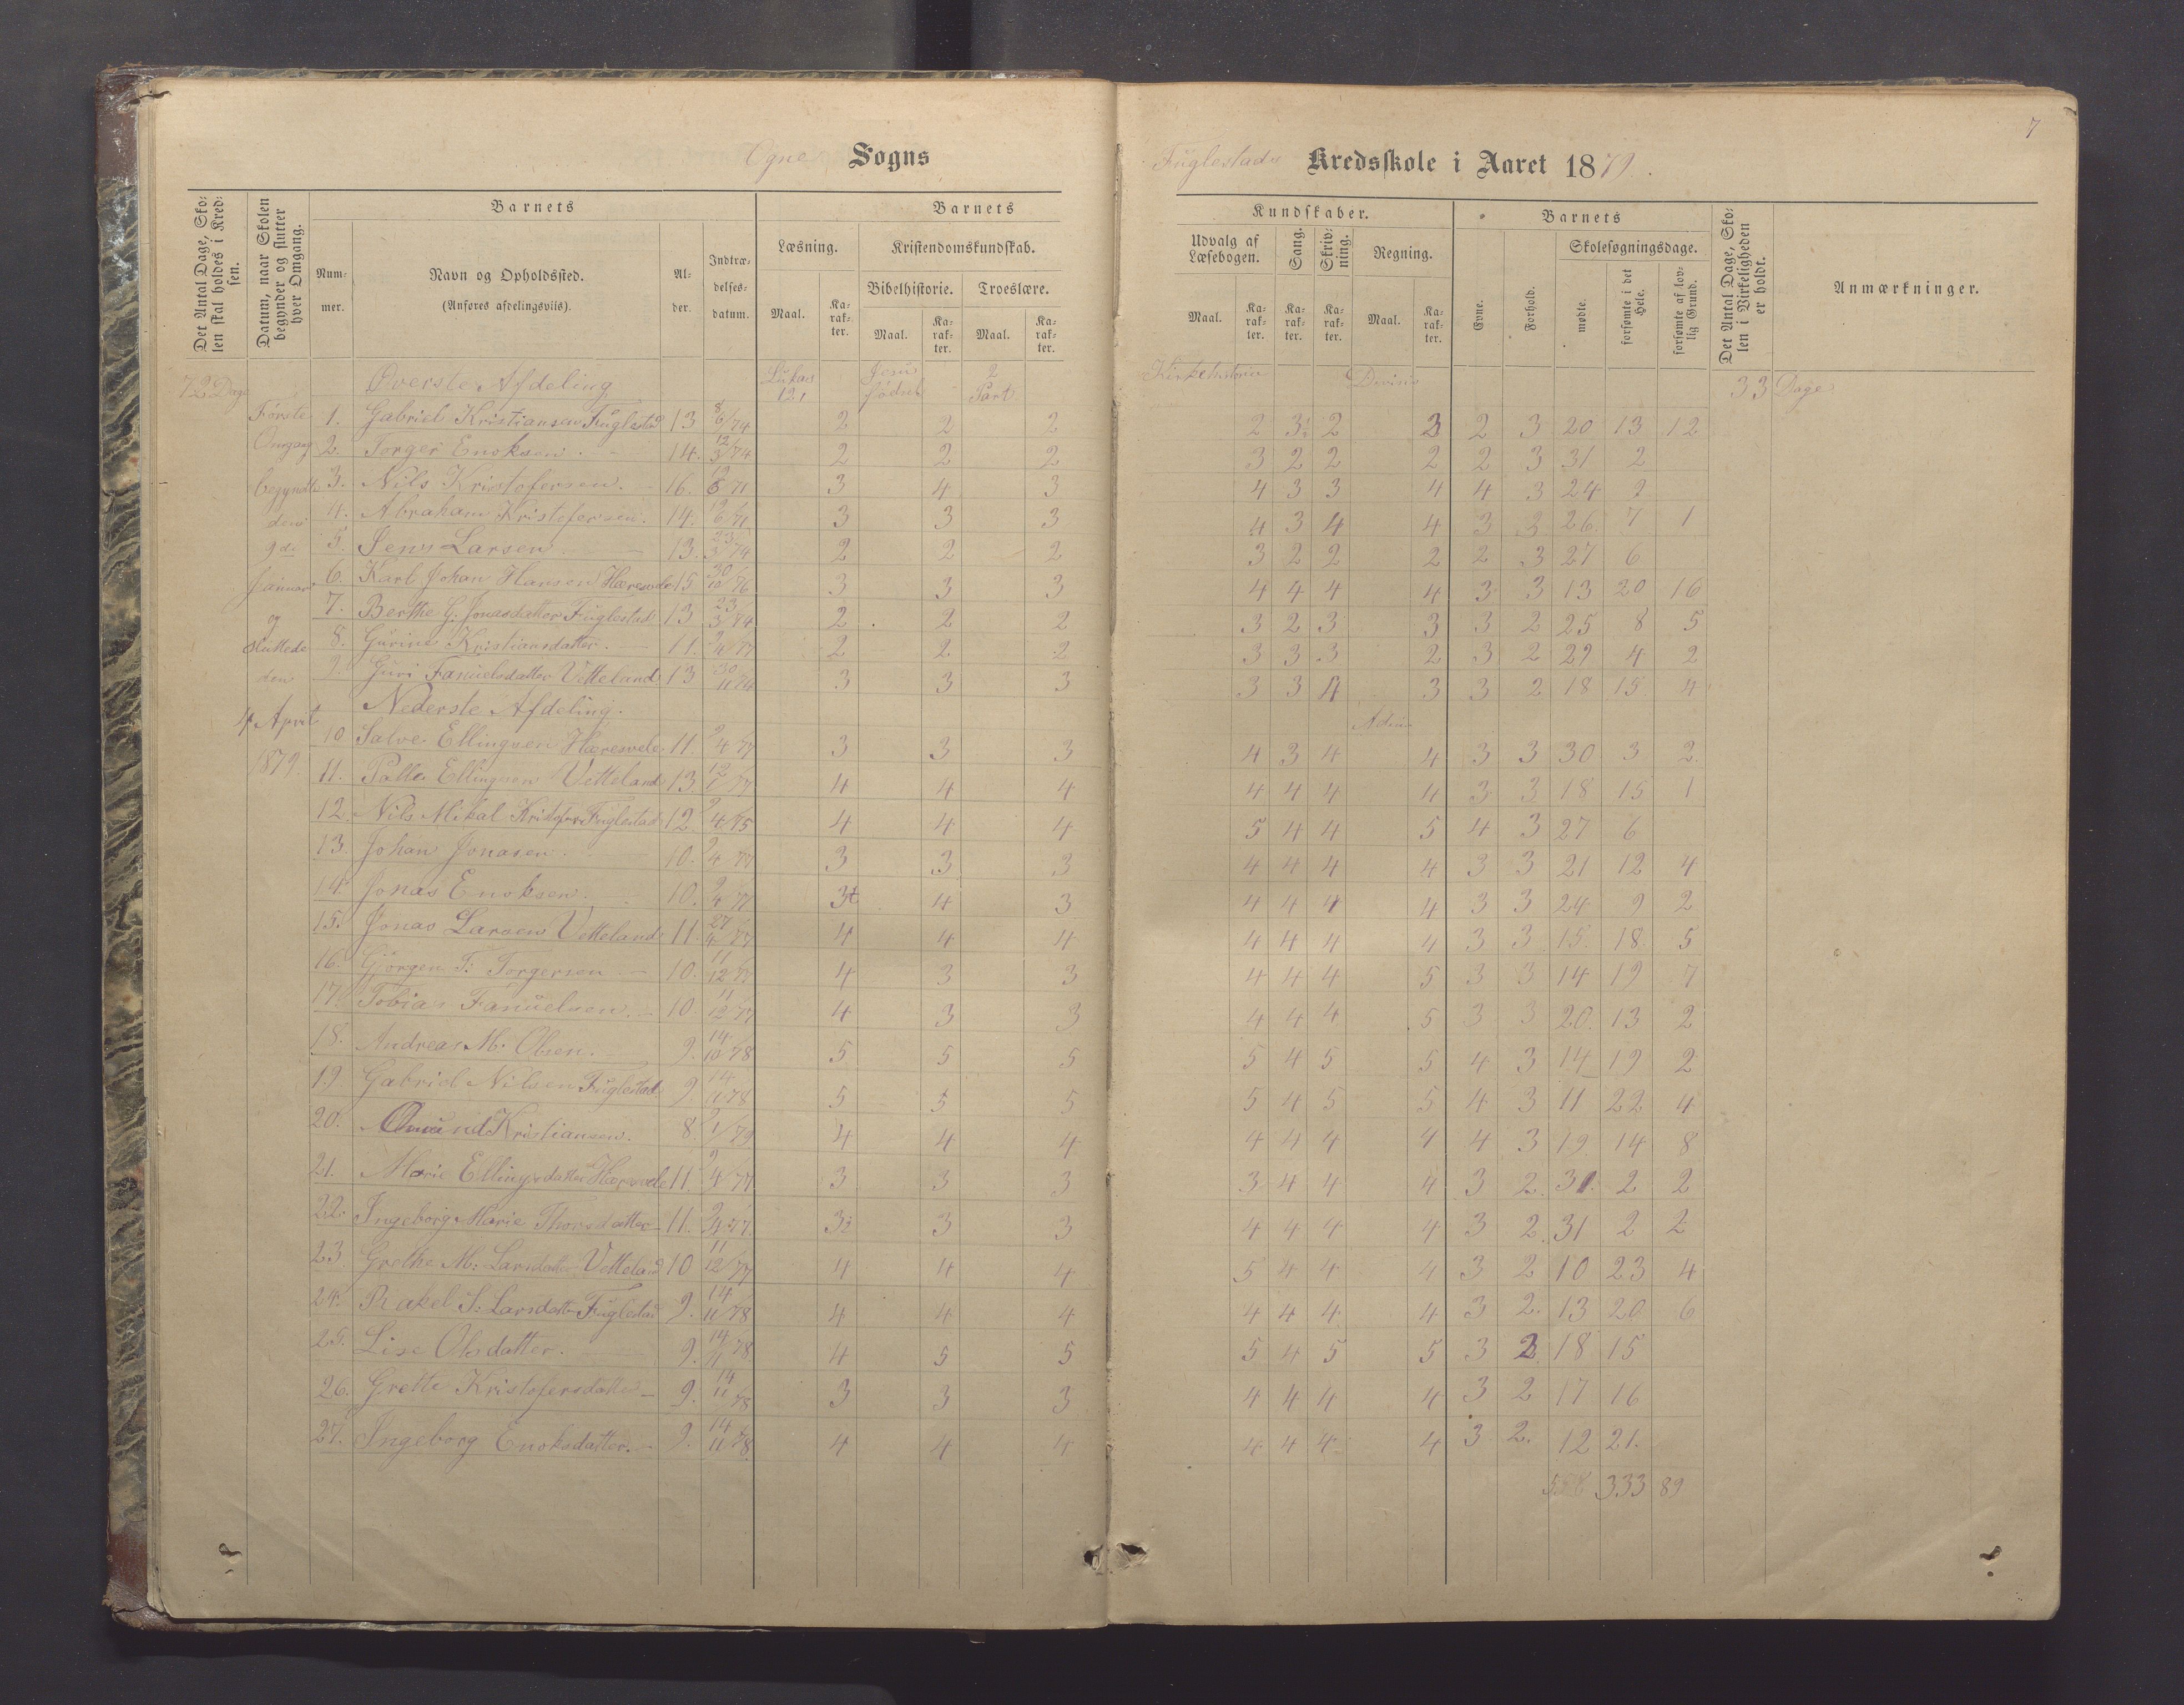 7
Ogne Sogns
Fuglestads Kredsskole i Aaret 1879.
Det Antal Dage, Skolen skal holdes i Kredsen.
Datum, naar Skolen begynder og slutter hver Omgang.
Barnets
Nummer.
Navn og Opholdssted.
(Anføres afdelingsviis).
Alder.
Indtrædelsesdatum.
Barnets
Læsning.
Maal.
Karakter.
Kristendomskundskab.
Bibelhistorie.
Maal.
Karakter.
Troeslære.
Maal.
Karakter.
Kundskaber.
Udvalg af Læsebogen.
Maal.
Karakter.
Sang.
Karakter.
Skrivning.
Karakter.
Regning.
Maal.
Karakter.
Barnets
Evne.
Forhold.
Skolesøgningsdage.
mødte.
forsømte i det Hele.
forsømte af lovlig Grund.
Det Antal Dage, Skolen i Virkeligheden er holdt.
Anmærkninger.
72 Dage
Første
Omgang
begyndte
den
9de
Januar
og
sluttede
den
4 April
1879.
Øverste Afdeling Lukas 12, Jesu fødsel 2 Part Kirkehistorie Division 33 Dage
1. Gabriel Kristiansen Fuglestad 13 8/6/74 2 2 2 2 3 2 3 2 3 20 13 12
2. Torger Enoksen. 14. 12/3/74 2 2 2 3 2 2 2 2 3 31 2
3. Nils Kristofersen. 16. 3 4 3 4 3 3 4 4 3 24 9
4. Abraham Kristofersen. 14. 3 3 3 4 3 4 4 3 3 26. 7 1
5. Jens Larsen 13. 23/3/74 2 2 2 3 2 2 2 2 3 27 6
6. Karl Johan Hansen Hæresvele 15. 30/10/76 3 3 3 4 4 4 4 3 3 13 20 16
7. Berthe G. Jonasdatter Fuglestad 13 23/3/74 2 2 2 3 2 3 3 3 2 25 8 5
8. Gurine Kristiansdatter. 11. 9/4/77 2 2 2 3 3 3 2 3 2 29 4 2
9. Guri Fanuelsdatter Vetteland 13 30/11/74 3 3 3 3 3 4 3 3 2 18 15 4
Nederste Afdeling.
10 Salve Ellingsen Hæresvele 11. 9/4/77 3 3 3 4 3 4 4 3 3 30 3 2.
11. Palle Ellingsen Vetteland 13. 12/1/77 4 4 4 4 4 4 4 3 3 18 15 1
12. Nils Mikal Kristofers. Fuglestad 12 9/4/75 4 4 4 5 4 4 5 4 3 27 6
13. Johan Jonasen. 10. 9/4/77 3 3 3 4 4 4 4 3 3 21 12 4
14. Jonas Enoksen. 10. 9/4/77 4 3 4 4 4 4 3 3 24 9 2
15. Jonas Larsen Vetteland 11. 27/4/77 4 4 4 4 4 4 4 3 3 15. 18. 5
16. Gjørgen T: Torgersen 10. 11/12/77 4 3 3 4 4 4 5 3 3 14 19 7
17. Tobias Fanuelsen. 10. 11/12/77 4 3 3 4 4 4 5 3 3 20. 13 2
18. Andreas M. Olsen. 9. 14/10/78 5 5 5 5 4 5 5 4 3 14 19 2
19. Gabriel Nilsen Fuglestad 9. 14/11/78 5 5 5 5 4 5 5 4 3 11 22 4
20. Kristiansen. 8 9/1/79 4 4 4 4 4 4 4 4 3 19. 14 8
21. Marie Ellingsdatter Hæresvele 11. 9/4/77 3 3 3 3 4 4 4 3 2. 31. 2 2
22. Ingeborg Marie Thorsdatter 11. 9/4/77. 3 3 3 4 4 4 4 3 2. 31 2 2
23. Grethe M: Larsdatter Vetteland 10 11/12/77 4 4 4 5 4 4 4 3 2 10 23 4
24. Rakel S: Larsdatter Fuglestad 9. 14/11/78 4 4 4 4 4 4 4 3 2. 13 20 6
25. Lise Olsdatter. 9. 14/11/78 4 5 5 5 4 5 5 3 2 18 15
26. Grette Kristofersdatter 9. 14/11/78 3 3 3 4 4 4 4 3 2 17 16
27. Ingeborg Enoksdatter. 9. 14/11/78. 4 4 4 4 4 4 4 3 2. 12 21.
558 333 89